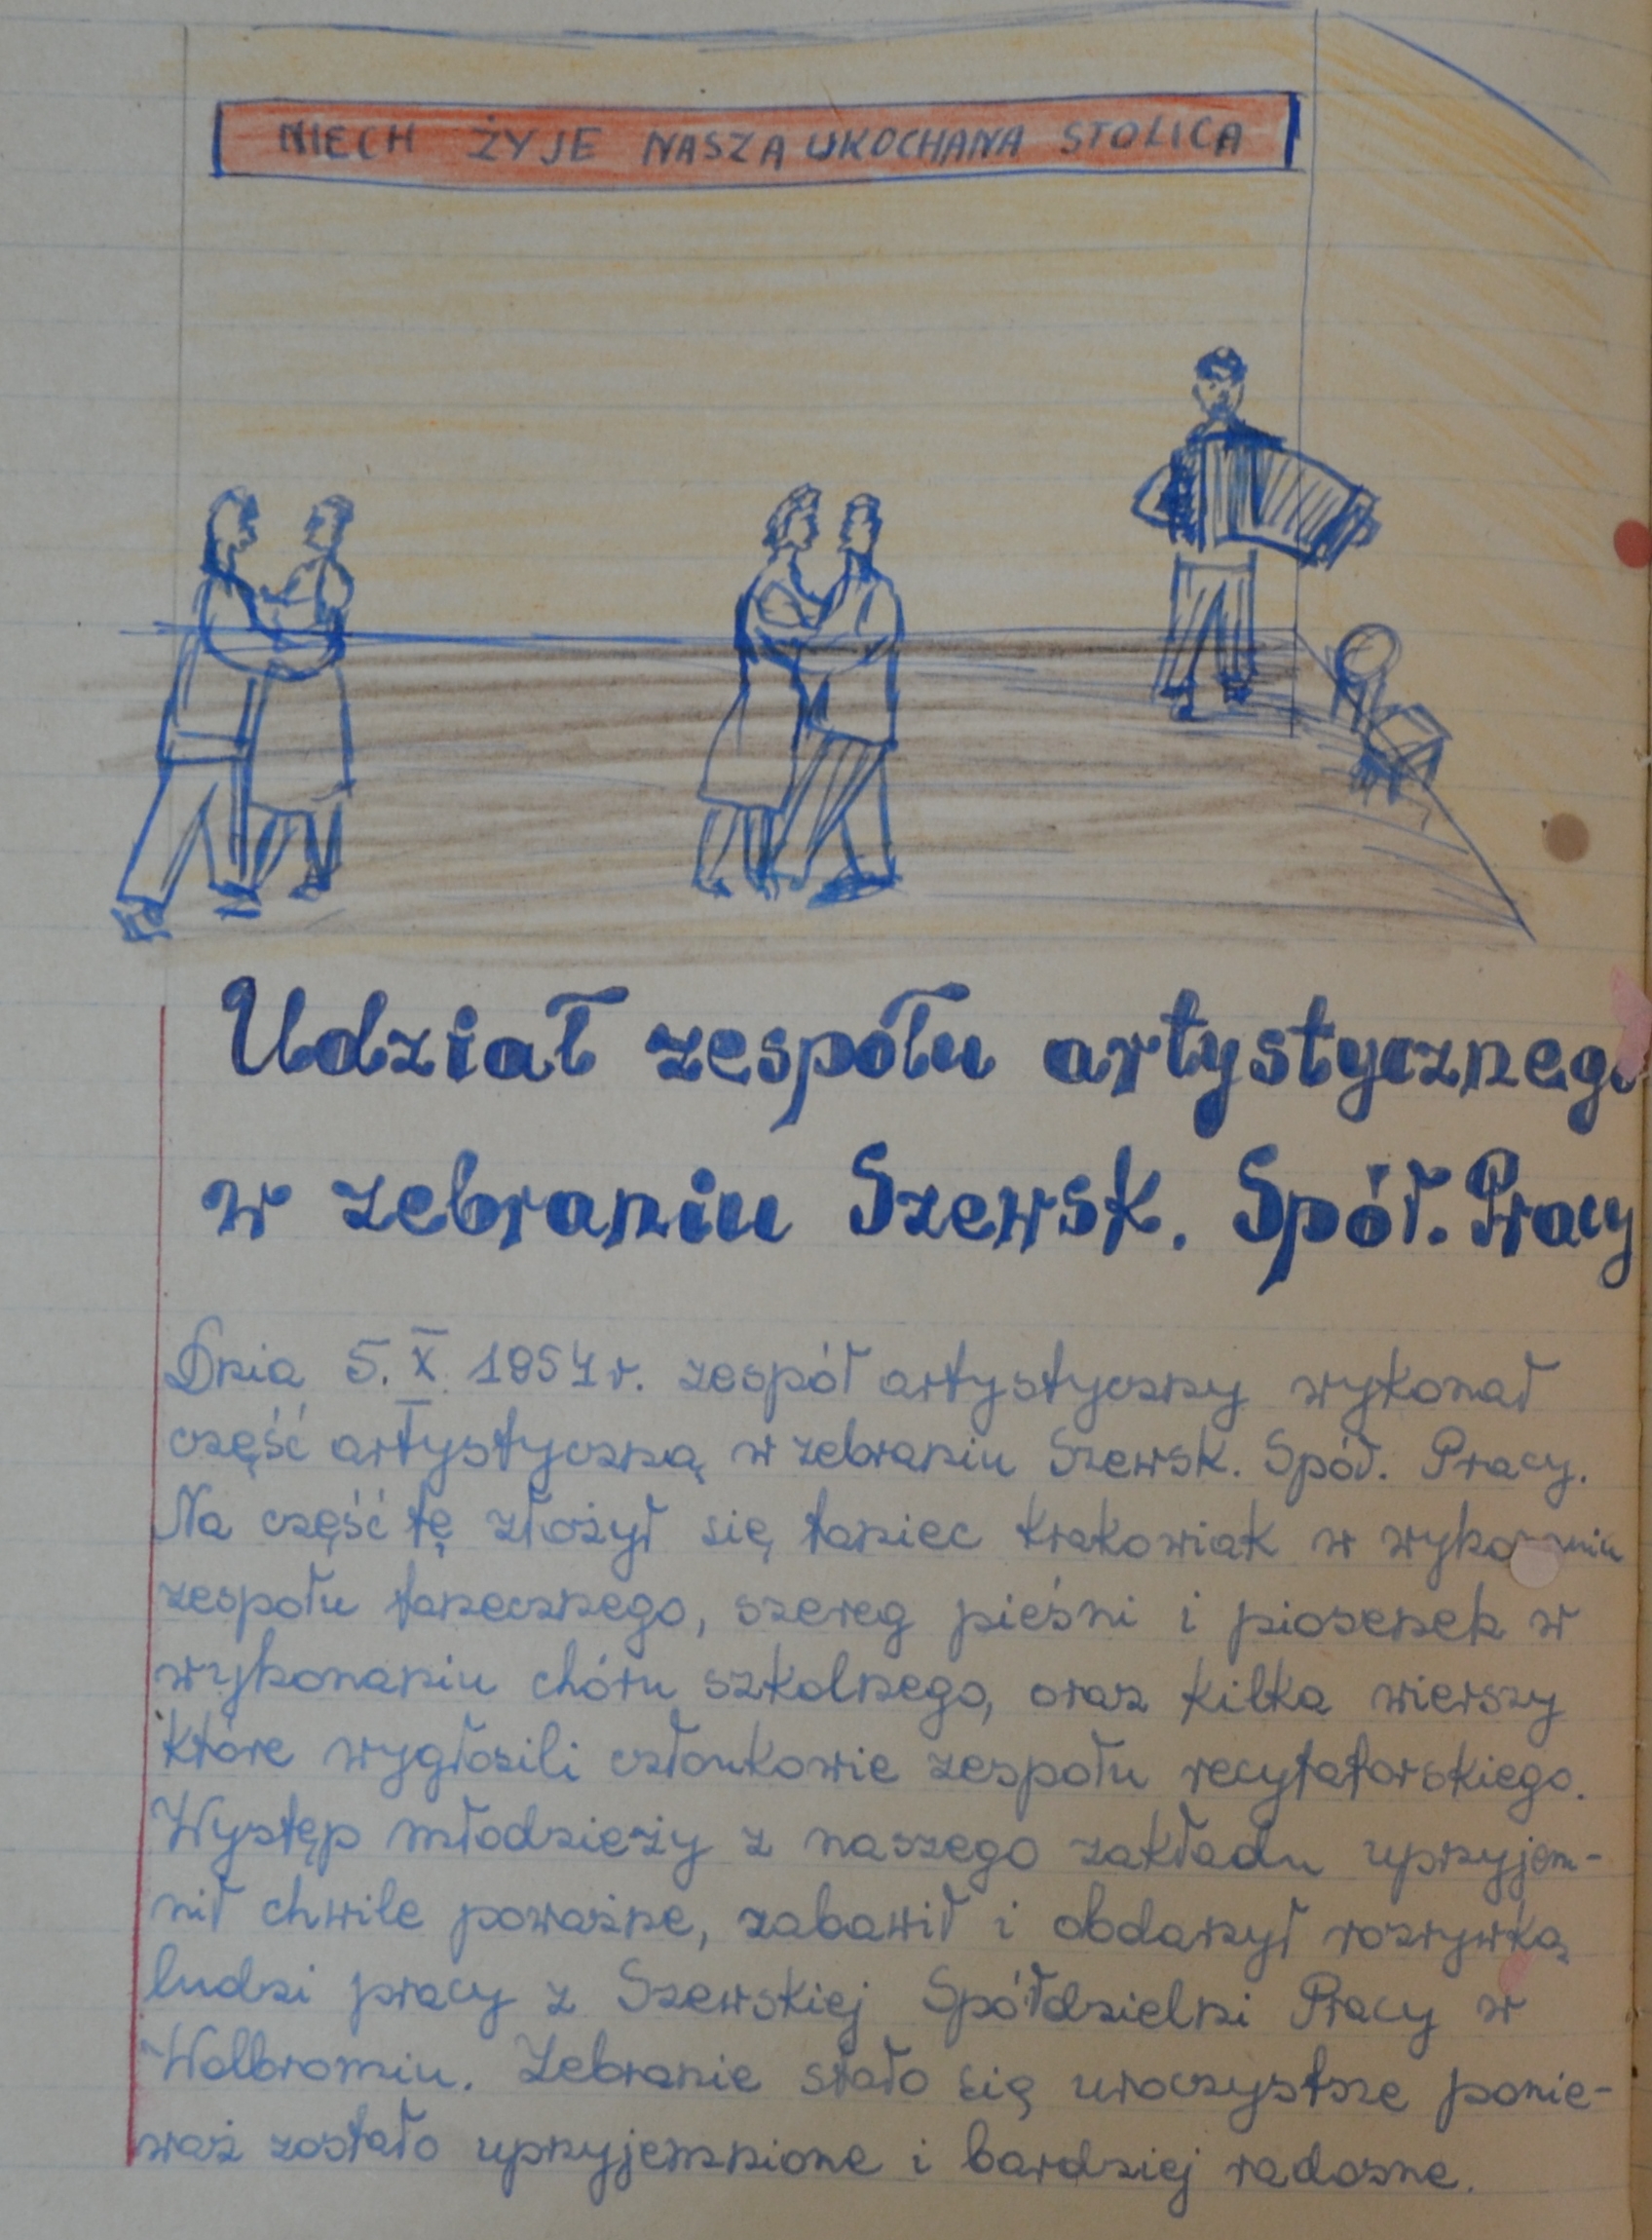 NIECH ŻYJE NASZA UKOCHANA STOLICA
Udział zespołu artystycznego
w zebraniu Szewsk. Spół. Pracy
Dnia 5. X. 1954 r. zespół artystyczny wykonał
część artystyczną w zebraniu Szewsk. Spół. Pracy.
Na część tę złożył się taniec Krakowiak w wykonaniu
zespołu tanecznego, szereg pieśni i piosenek w
wykonaniu chóru szkolnego, oraz kilka wierszy
które wygłosili członkowie zespołu recytatorskiego.
Występ młodzieży z naszego zakładu uprzyjem-
nił chwile poważne, zabawił i obdarzył rozrywką
ludzi pracy z Szewskiej Spółdzielni Pracy w
Wolbromiu. Zebranie stało się uroczystsze ponie-
waż zostało uprzyjemnione i bardziej radosne.